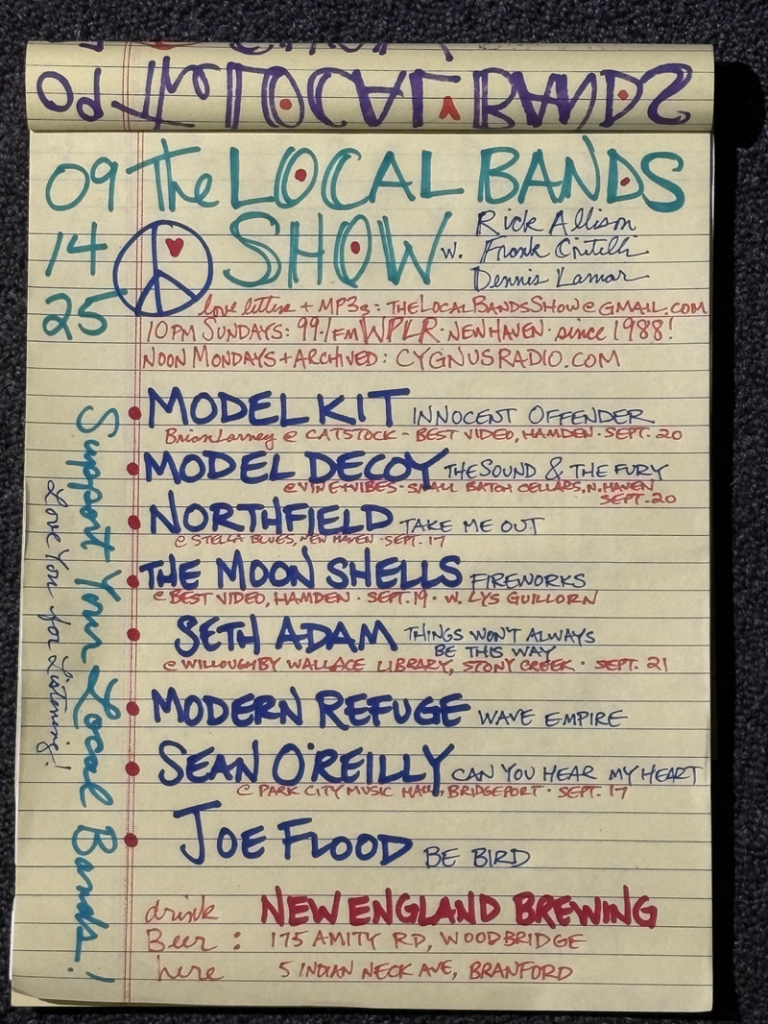 The LOCAL BANDS
09 The LOCAL BANDS
14 SHOW w. Rick Allison
Frank Critelli
25 Dennis Lamar
love letters + MP3s: THELOCALBANDSSHOW@GMAIL.COM
10PM SUNDAYS: 99.1FM WPLR · NEW HAVEN · since 1988!
NOON MONDAYS + ARCHIVED: CYGNUSRADIO.COM
• MODEL KIT INNOCENT OFFENDER
Brian Larney @ CATSTOCK - BEST VIDEO, HAMDEN · SEPT. 20
• MODEL DECOY THE SOUND & THE FURY
@ VINE + VIBES · SMALL BATCH CELLARS, N. HAVEN
SEPT. 20
• NORTHFIELD TAKE ME OUT
@ STELLA BLUES, NEW HAVEN · SEPT. 17
• THE MOON SHELLS FIREWORKS
@ BEST VIDEO, HAMDEN · SEPT. 19 · W. LYS GUILLORN
• SETH ADAM THINGS WON'T ALWAYS
BE THIS WAY
@ WILLOUGHBY WALLACE LIBRARY, STONY CREEK · SEPT. 21
• MODERN REFUGE WAVE EMPIRE
• SEAN O'REILLY CAN YOU HEAR MY HEART
@ PARK CITY MUSIC HALL, BRIDGEPORT · SEPT. 17
• JOE FLOOD BE BIRD
drink NEW ENGLAND BREWING
Beer : 175 AMITY RD, WOODBRIDGE
here 5 INDIAN NECK AVE, BRANFORD
Support Your Local Bands!
Love You for Listening!